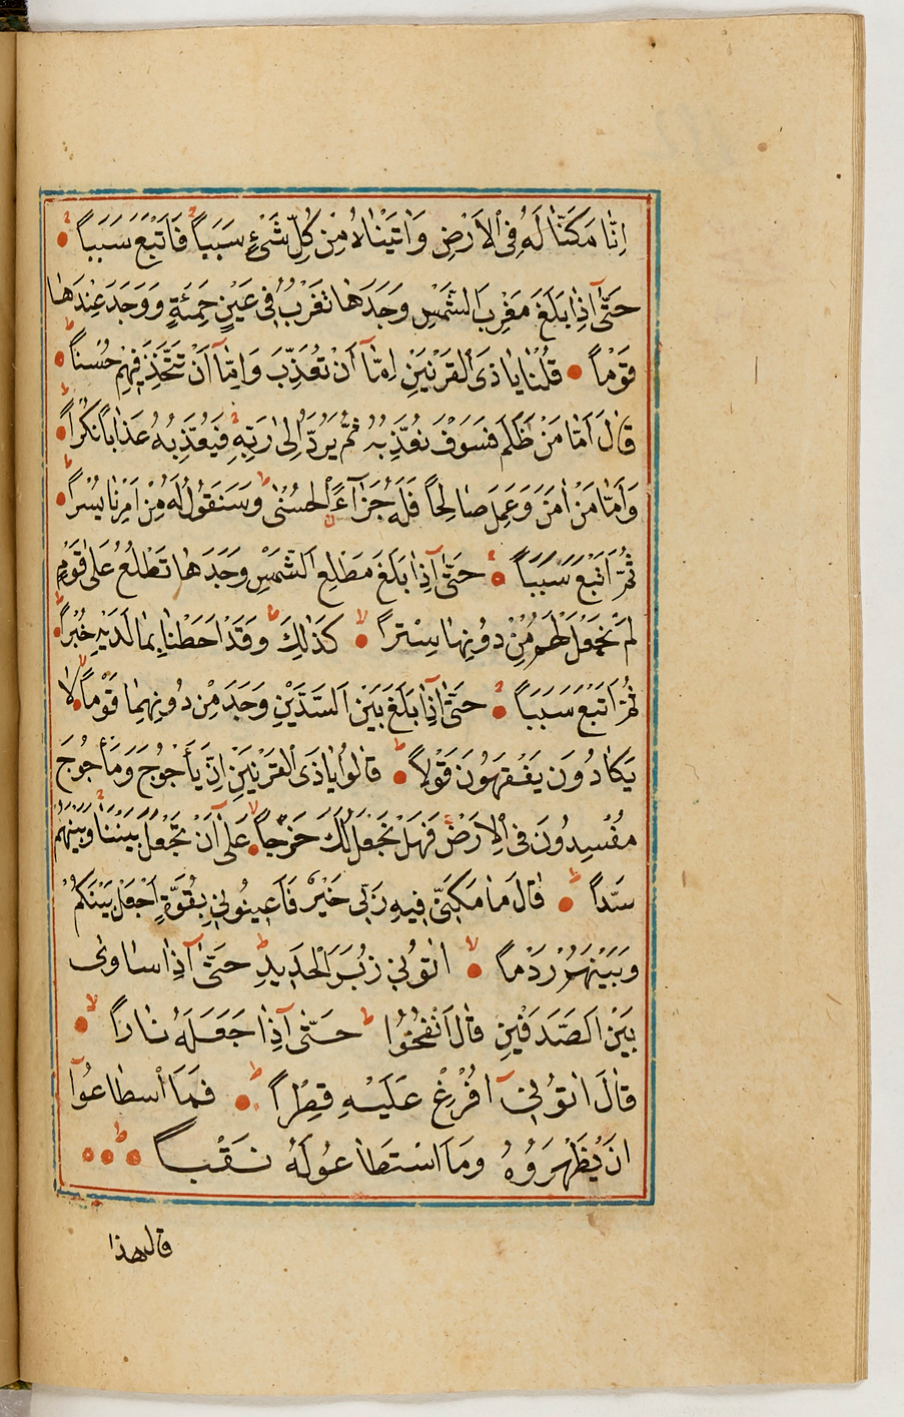 اِنَّا مَكَّنَّا لَهُ فِى الْاَرْضِ وَاٰتَيْنَاهُ مِنْ كُلِّ شَىْءٍ سَبَباً فَاَتْبَعَ سَبَباً
حَتّٰٓى اِذَا بَلَغَ مَغْرِبَ الشَّمْسِ وَجَدَهَا تَغْرُبُ فِى عَيْنٍ حَمِئَةٍ وَوَجَدَ عِنْدَهَا
قَوْماً قُلْنَا يَا ذَى الْقَرْنَيْنِ اِمَّٓا اَنْ تُعَذِّبَ وَاِمَّٓا اَنْ تَتَّخِذَ فِيهِمْ حُسْناً
قَالَ اَمَّا مَنْ ظَلَمَ فَسَوْفَ نُعَذِّبُهُ ثُمَّ يُرَدُّ اِلٰى رَبِّهِ فَيُعَذِّبُهُ عَذَاباً نُكْراً
وَاَمَّا مَنْ اٰمَنَ وَعَمِلَ صَالِحاً فَلَهُ جَزَٓاءً الْحُسْنٰى وَسَنَقُولُ لَهُ مِنْ اَمْرِنَا يُسْراً
ثُمَّ اَتْبَعَ سَبَباً حَتّٰٓى اِذَا بَلَغَ مَطْلِعَ الشَّمْسِ وَجَدَهَا تَطْلُعُ عَلٰى قَوْمٍ
لَمْ نَجْعَلْ لَهُمْ مِنْ دُونِهَا سِتْراً كَذٰلِكَ وَقَدْ اَحَطْنَا بِمَا لَدَيْهِ خُبْراً
ثُمَّ اَتْبَعَ سَبَباً حَتّٰٓى اِذَا بَلَغَ بَيْنَ السَّدَّيْنِ وَجَدَ مِنْ دُونِهِمَا قَوْماً لَا
يَكَادُونَ يَفْقَهُونَ قَوْلاً قَالُوا يَا ذَى الْقَرْنَيْنِ اِنَّ يَأْجُوجَ وَمَأْجُوجَ
مُفْسِدُونَ فِى الْاَرْضِ فَهَلْ نَجْعَلُ لَكَ خَرْجاً عَلٰٓى اَنْ تَجْعَلَ بَيْنَنَا وَبَيْنَهُمْ
سَدّاً قَالَ مَا مَكَّنِّى فِيهِ رَبِّى خَيْرٌ فَاَعِينُونِى بِقُوَّةٍ اَجْعَلْ بَيْنَكُمْ
وَبَيْنَهُمْ رَدْماً اٰتُونِى زُبَرَ الْحَدِيدِ حَتّٰٓى اِذَا سَاوٰى
بَيْنَ الصَّدَفَيْنِ قَالَ انْفُخُوا حَتّٰٓى اِذَا جَعَلَهُ نَاراً
قَالَ اٰتُونِٓى اُفْرِغْ عَلَيْهِ قِطْراً فَمَا اسْطَاعُٓوا
اَنْ يَظْهَرُوهُ وَمَا اسْتَطَاعُوا لَهُ نَقْباً
قال هذا